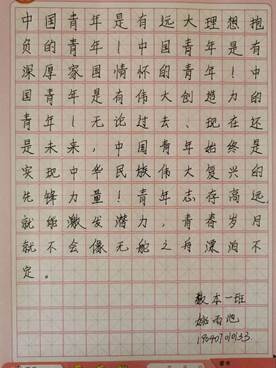 中国青年是有远大理想抱
负的青年！中国青年是有
深厚家国情怀的青年！中
国青年是有伟大创造力的
青年！无论过去、现在还
是未来，中国青年始终是
实现中华民族伟大复兴的
先锋力量！青年志存高远
就能激发潜力，青春岁月
就不会像无舵之舟漂泊不
定。
数本一班